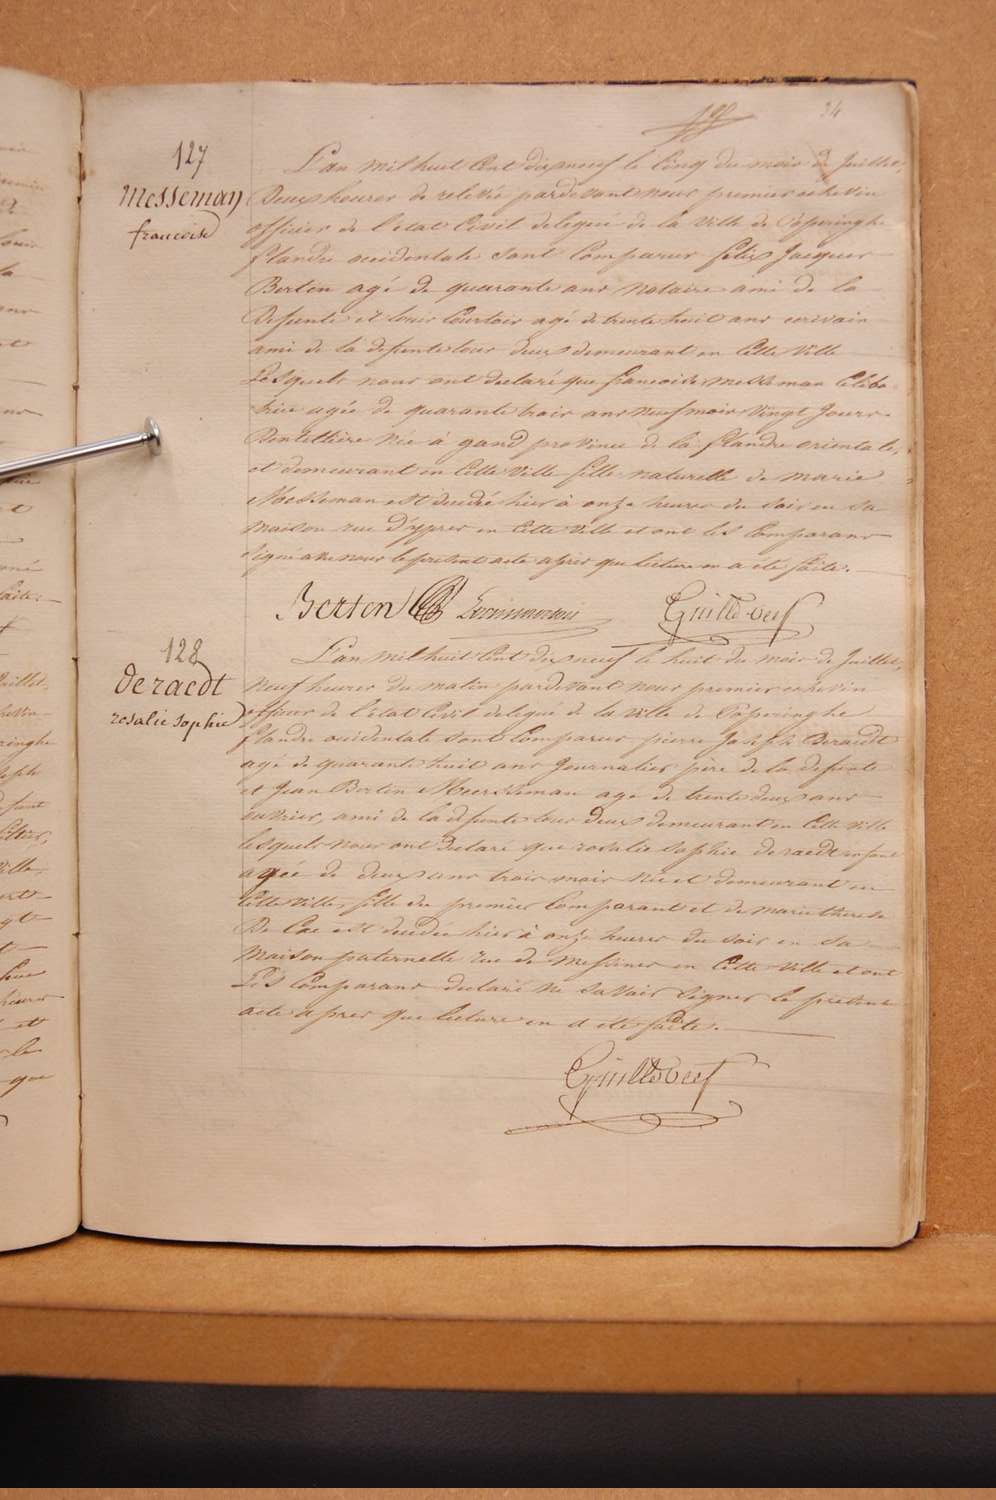 34
127
Messeman
francoise
L'an mil huit Cent dix neuf le Cinq du mois de Juillet,
Deux heures de relevée pardevant nous premier echevin
officier de l'etat Civil delegué de la Ville de Poperinghe
flandre occidentale sont Comparus felix Jacques
Berten agé de quarante ans notaire ami de la
Defunte et Louis Courtois agé de trente huit ans ecrivain
ami de la defunte tous deux demeurant en Cette Ville
Lesquels nous ont declaré que francoise Messeman Celiba-
trice agée de quarante trois ans neuf mois Vingt Jours
Dentelliere Née à gand province de la flandre orientale,
et demeurant en Cette Ville fille naturelle de marie
Messeman est decedé hier à onze heures du soir en sa
maison rue d'ypres en Cette Ville et ont les Comparans
Signé avec nous le present acte après que lecture en a eté faite.
Berten Guillebeef
128
De raedt
rosalie sophie
L'an mil huit Cent dix neuf le huit du mois de Juillet,
neuf heures du matin pardevant nous premier echevin
officier de l'etat Civil delegué de la Ville de Poperinghe
flandre occidentale sont Comparus pierre Joseph Deraedt
agé de quarante huit ans Journalier père de la defunte
et Jean Berten Meersseman agé de trente deux ans
ouvrier, ami de la defunte tous deux demeurant en Cette Ville
lesquels nous ont declaré que rosalie sophie De raedt enfant
agée de deux ans trois mois née et demeurant en
Cette Ville, fille du premier Comparant et de marie therese
De Cae est decedée hier à onze heures du soir en sa
maison paternelle rue de messines en Cette Ville et ont
Les Comparans declaré ne savoir signer le présent
acte après que lecture en a eté faite.
Guillebeef